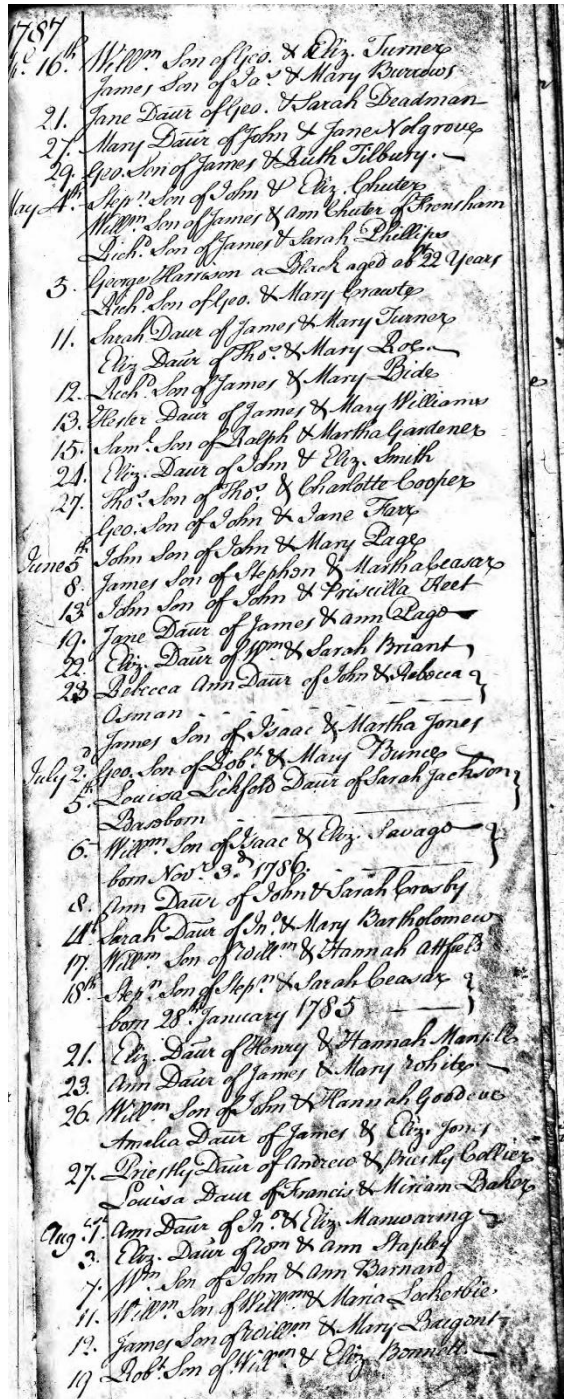 1787
16th. Willm. Son of Geo. & Eliz. Turner
James Son of Jas. & Mary Burrows
21. Jane Daur of Geo. & Sarah Deadman
27. Mary Daur of John & Jane Nolgrove
29. Geo. Son of James & Ruth Tilbury.
May 4th. Stepn. Son of John & Eliz. Chuter
Willm. Son of James & Ann Chuter of Frensham
Richd. Son of James & Sarah Phillips
3. George Harrison a Black aged abt 22 Years
Richd. Son of Geo. & Mary Crawte
11. Sarah Daur of James & Mary Turner
Eliz Daur of Thos. & Mary Roe.
12. Richd. Son of James & Mary Bide
13. Hester Daur of James & Mary Williams
15. Saml. Son of Ralph & Martha Gardener
24. Eliz. Daur of John & Eliz. Smith
27. Thos. Son of Thos. & Charlotte Cooper
Geo. Son of John & Jane Farr
June 5th John Son of John & Mary Page
8. James Son of Stephen & Martha Ceasar
13. John Son of John & Priscilla Fleet
19. Jane Daur of James & Ann Page
22. Eliz. Daur of Wm. & Sarah Briant
23 Rebecca Ann Daur of John & Rebecca
Osman
James Son of Isaac & Martha Jones
July 2d. Geo. Son of Robt. & Mary Bunce
5th. Louisa Lickfold Daur of Sarah Jackson
Baseborn
6. Willm. Son of Isaac & Eliz. Savage
born Novr. 3d. 1786.
8. Ann Daur of John & Sarah Crosby
Sarah Daur of Jno. & Mary Bartholomew
17. Willm Son of Willm & Hannah Attfield
18th. Stepn. Son of Stepn. & Sarah Ceasar
born 28th. January 1785
21. Eliz. Daur of Henry & Hannah
23. Ann Daur of James & Mary White
26. Willm. Son of John & Hannah Goodeve
Amelia Daur of James & Eliz. Jones
27. Priestly Daur of Andrew & Priestly Collier
Louisa Daur of Francis & Miriam Baker
Aug. 1st. Ann Daur of Jno. & Eliz. Manwaring
3. Eliz. Daur of Wm & Ann Stapley
7. Wm. Son of John & Ann Barnard
11. Willm. Son of Willm & Maria Lockerbie
12. James Son of Willm & Mary Baigent
19 Robt. Son of Willm & Eliz. Bennett